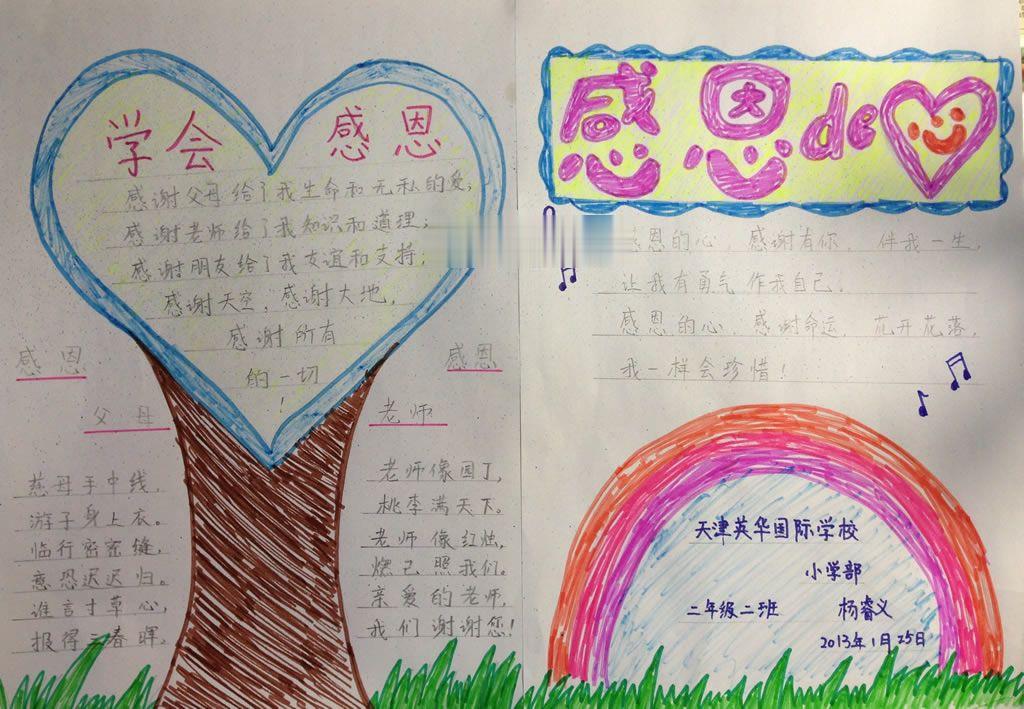 学会 感恩
感谢父母给了我生命和无私的爱;
感谢老师给了我知识和道理;
感谢朋友给了我友谊和支持;
感谢天空,感谢大地,
感谢所有
的一切
!
感恩
父母
慈母手中线,
游子身上衣。
临行密密缝,
意恐迟迟归。
谁言寸草心,
报得三春晖。
感恩
老师
老师像园丁,
桃李满天下。
老师像红烛,
燃己照我们。
亲爱的老师,
我们谢谢您!
感恩de
感恩的心,感谢有你,伴我一生,
让我有勇气作我自己。
感恩的心,感谢命运,花开花落,
我一样会珍惜!
天津英华国际学校
小学部
二年级二班 杨睿义
2013年1月25日